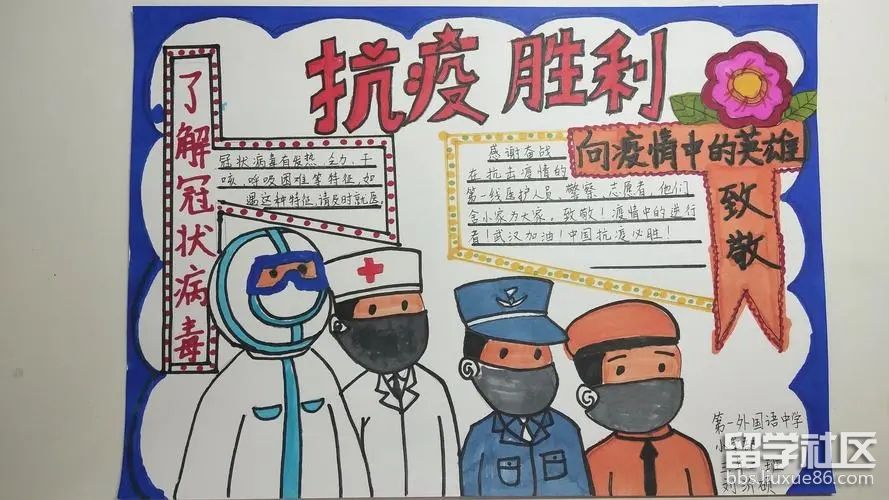 抗疫胜利
了解冠状病毒
冠状病毒有发热、乏力、干
咳、呼吸困难等特征,如
遇这种特征,请及时就医。
感谢奋战
在抗击疫情的
第一线医护人员、警察、志愿者,他们
舍小家为大家。致敬!疫情中的逆行
者!武汉加油!中国抗疫必胜!
向疫情中的英雄
致敬
第一外国语中学
留学社区
bbs.liuxue86.com